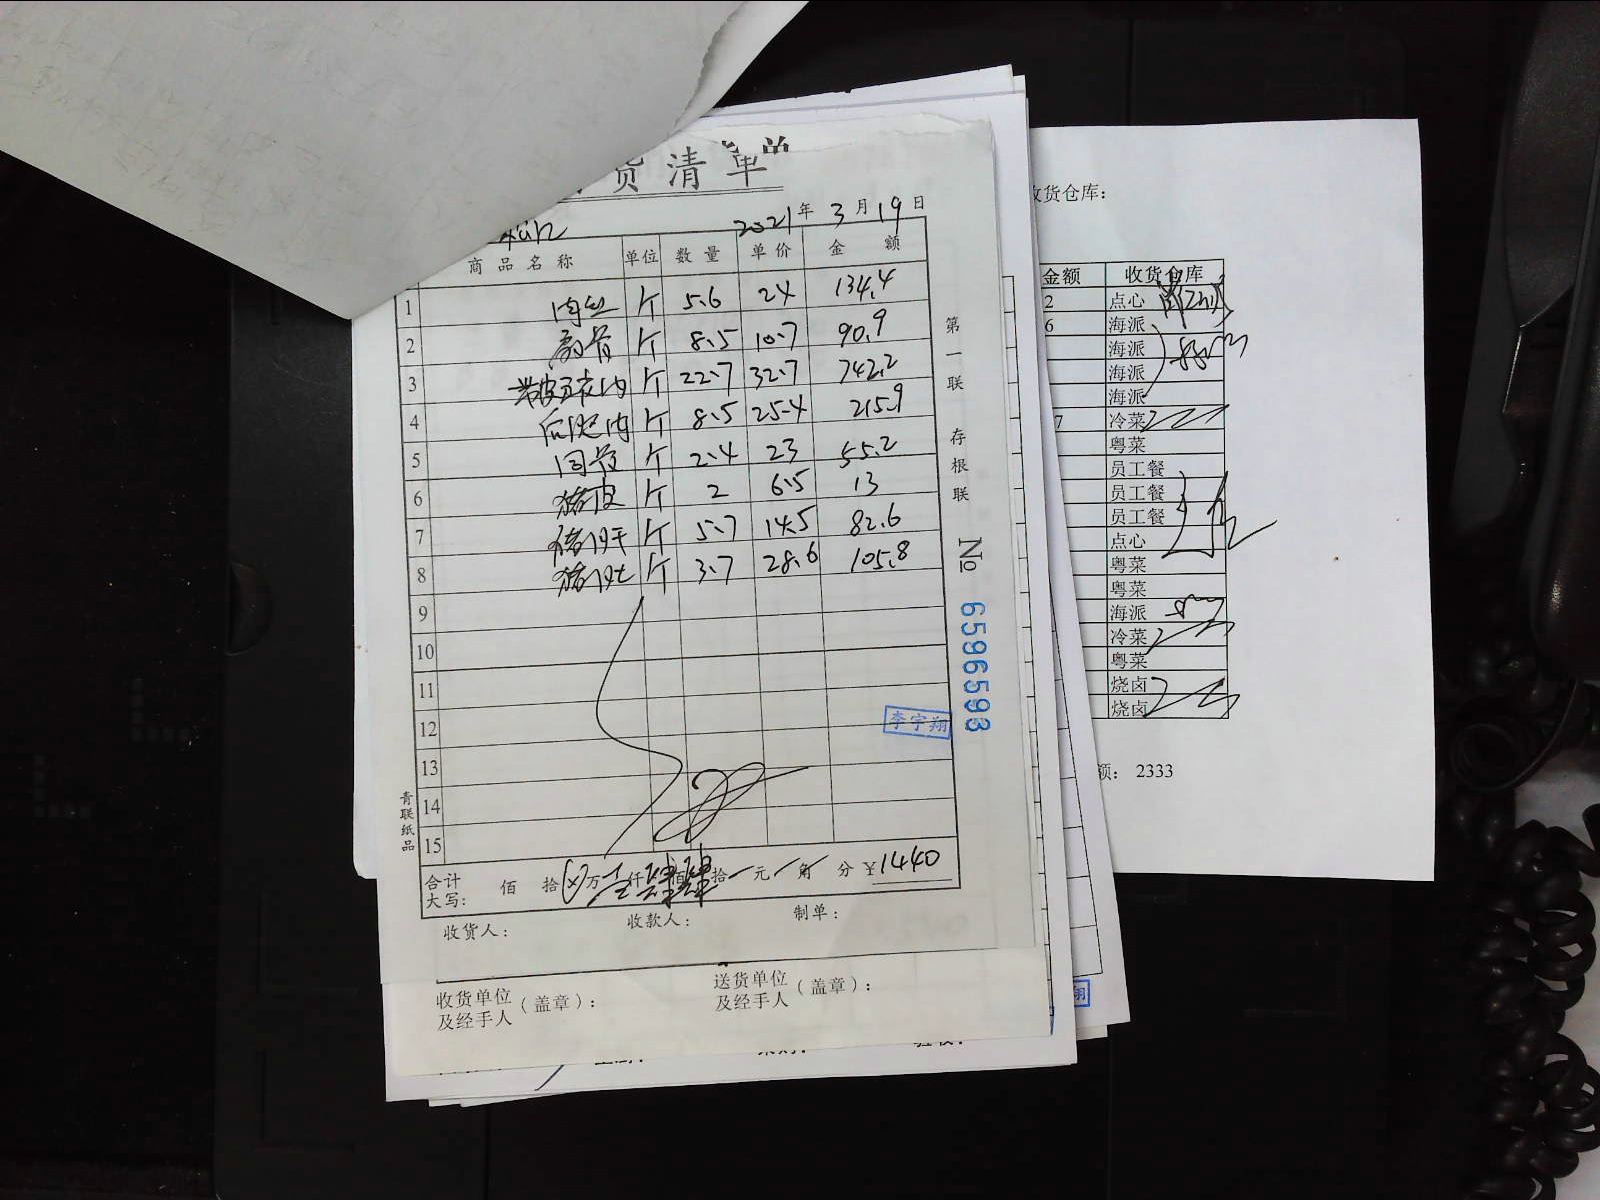 货清单
2021年3月19日
商品名称 单位 数量 单价 金额
1 肉丝 斤 5.6 24 134.4
2 扇骨 斤 8.5 10.7 90.9
3 带皮五花肉 斤 22.7 32.7 742.2
4 后腿肉 斤 8.5 25.4 215.9
5 斤 2.4 23 55.2
6 猪皮 斤 2 6.5 13
7 猪肝 斤 5.7 14.5 82.6
8 猪肚 斤 3.7 28.6 105.8
9
10
11
12
13
14
15
合计大写: 佰 拾 万 仟 佰 拾 元 角 分 ¥1440
收货人: 收款人: 制单:
收货单位及经手人(盖章): 送货单位及经手人(盖章):
第一联 存根联
№ 6596593
李宇翔
青联纸品
收货仓库:
金额 收货仓库
2 点心
6 海派
海派
海派
海派
7 冷菜
粤菜
员工餐
员工餐
员工餐
点心
粤菜
粤菜
海派
冷菜
粤菜
烧卤
烧卤
额: 2333
翔